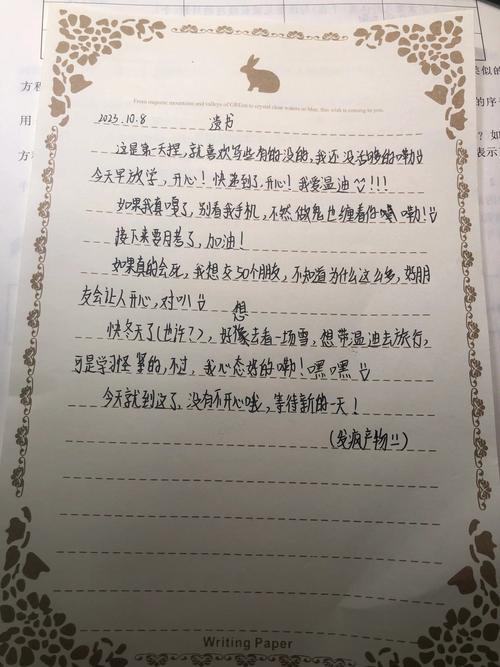 From majestic mountains and valleys of GREen to crystal clear waters so blue, this wish is coming to you.
2023.10.8 遗书
这是第一天捏,就喜欢写些有的没的,我还没活够的嘞
今天早放学,开心!快递到了,开心!我爱温迪!!!
如果我真嘎了,别看我手机,不然做鬼也缠着你嘞!
接下来要月考了,加油!
如果真的会死,我想交50个朋友,不知道为什么这么多,好朋
友会让人开心,对叭
想
快冬天了(也许?),好像去看一场雪,想带温迪去旅行,
可是学习怪紧的,不过,我心态好的嘞!嘿嘿
今天就到这了,没有不开心哦,等待新的一天!
(发疯产物!!)
Writing Paper
类似的
方程
的序
用
? 如
方
表示